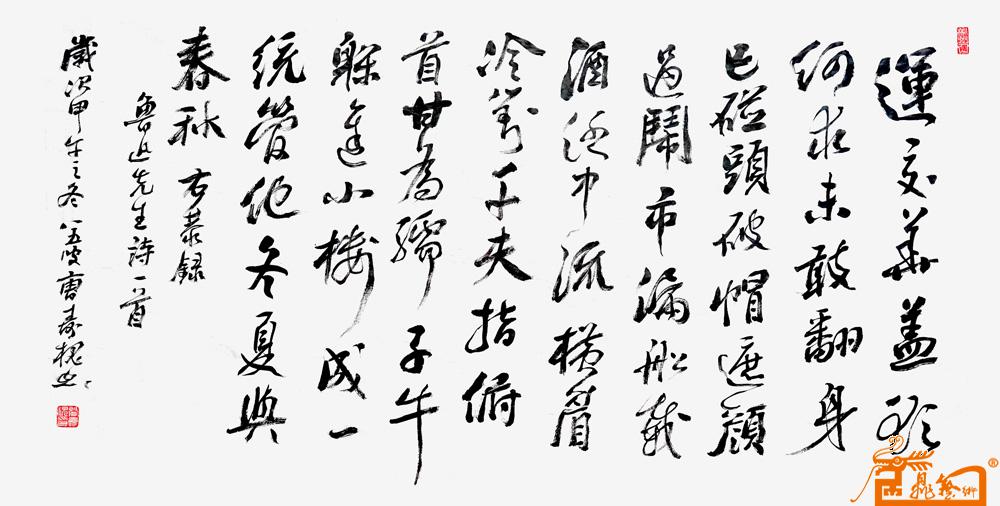 運交華蓋欲
何求未敢翻身
已碰頭破帽遮顏
過鬧市漏船載
酒泛中流橫眉
冷對千夫指俯
首甘為孺子牛
躲進小樓成一
統管他冬夏與
春秋 右恭錄
魯迅先生詩一首
歲次甲午之冬八五叟曹壽槐書